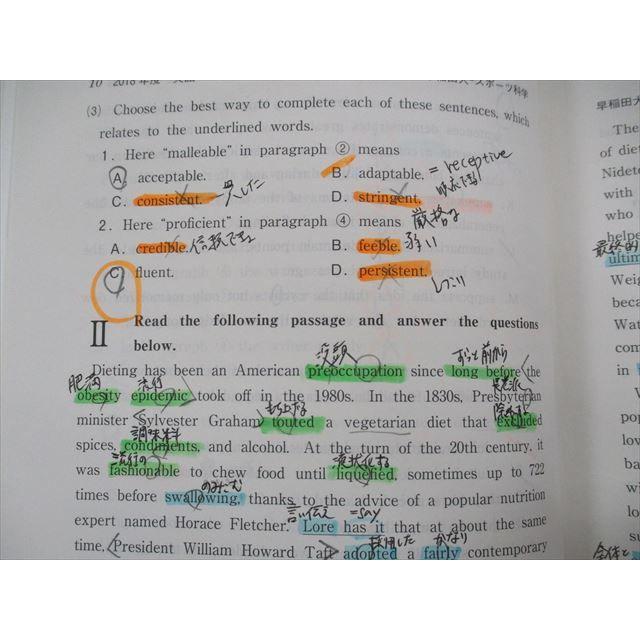 10 2018年度
ポーツ科学
(3) Choose the best way to complete each of these sentences, which
relates to the underlined words.
1. Here "malleable" in paragraph ② means
A. acceptable. B. adaptable. = receptive
C. consistent. 一貫した D. stringent.
2. Here "proficient" in paragraph ④ means 厳格な
A. credible. 信頼できる B. feeble. 弱い
C. fluent. D. persistent.
しつこい
II Read the following passage and answer the questions
below.
没頭 ずっと前から
Dieting has been an American preoccupation since long before the
肥満 流行
obesity epidemic took off in the 1980s. In the 1830s, Presbyterian
minister Sylvester Graham touted a vegetarian diet that excluded
調味料
spices, condiments, and alcohol. At the turn of the 20th century, it
流行の 液状化する
was fashionable to chew food until liquefied, sometimes up to 722
のみこむ
times before swallowing, thanks to the advice of a popular nutrition
言い伝え =say
expert named Horace Fletcher. Lore has it that at about the same
採用した かなり
time, President William Howard Taft adopted a fairly contemporary
早稲田大
The
of diet
Nidet
with
who
helpe
最終的
ultim
Weig
beca
Wat
com
in
pop
lov
ba
wi
lo
全体と